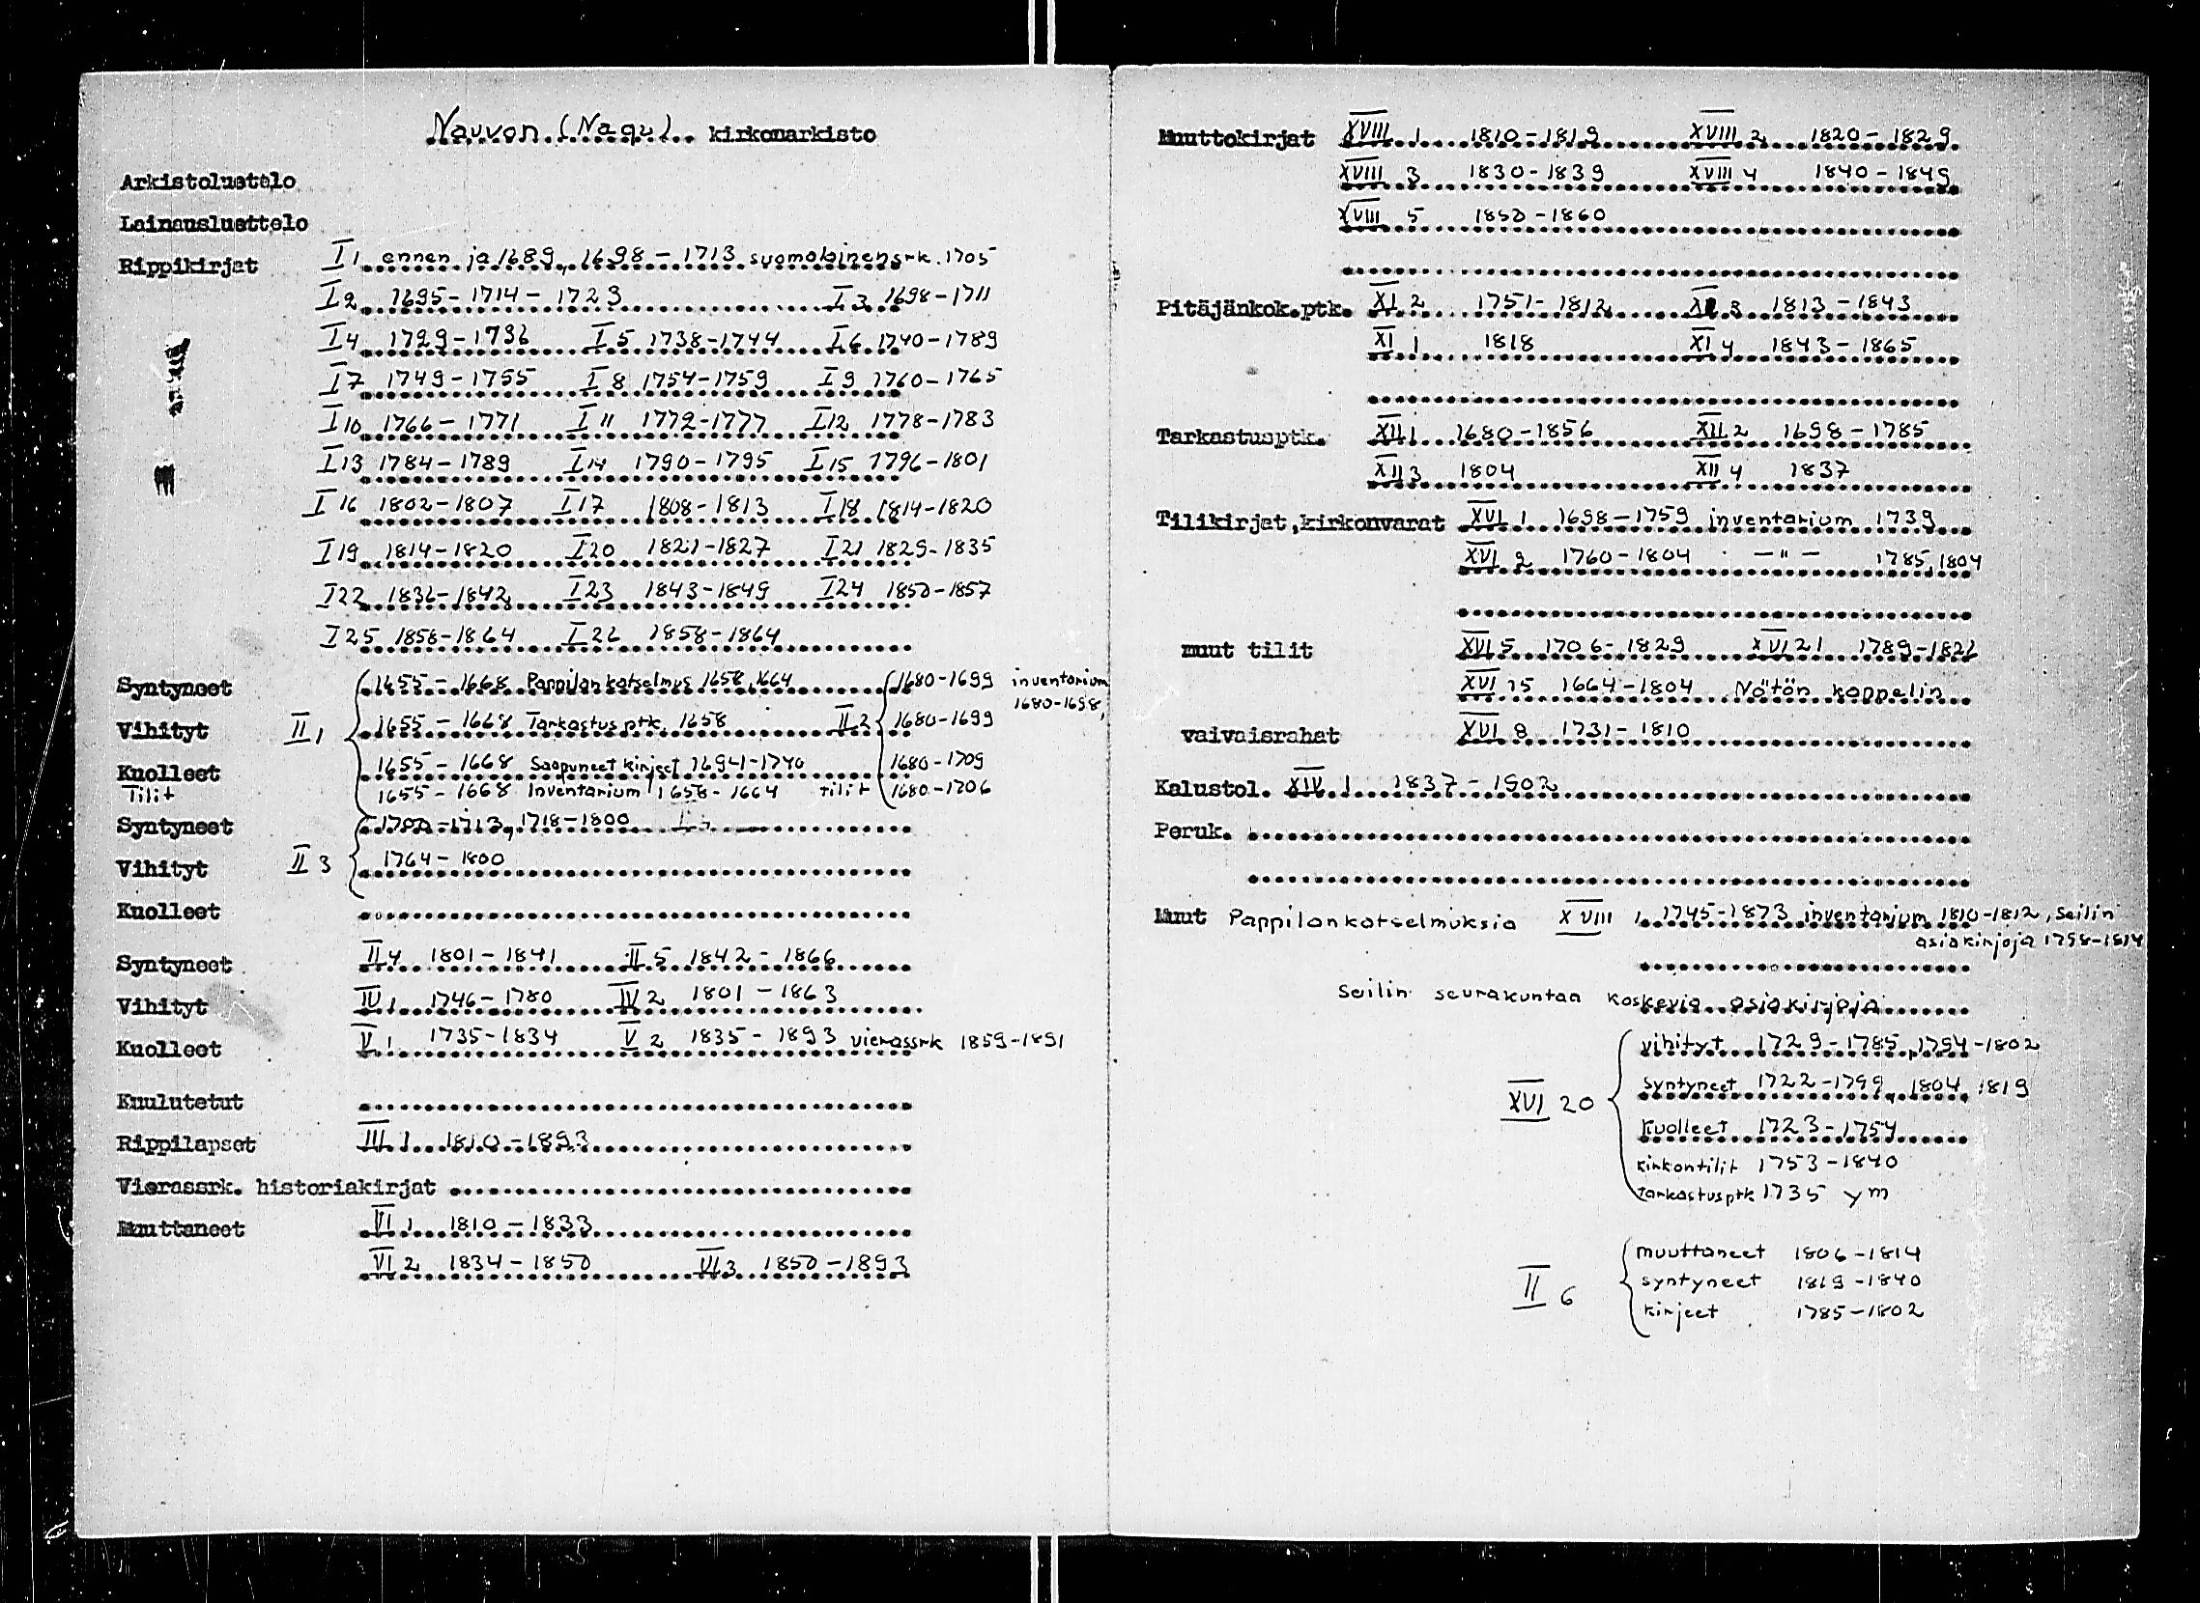 Nauvon (Nagu) kirkonarkisto
Arkistoluettelo
Lainausluettelo
Rippikirjat I 1 ennen ja 1689, 1698-1713 suomalainen srk. 1705
I 2 1695-1714-1723 I 3 1698-1711
I 4 1729-1736 I 5 1738-1744 I 6 1740-1789
I 7 1749-1755 I 8 1754-1759 I 9 1760-1765
I 10 1766-1771 I 11 1772-1777 I 12 1778-1783
I 13 1784-1789 I 14 1790-1795 I 15 1796-1801
I 16 1802-1807 I 17 1808-1813 I 18 1814-1820
I 19 1814-1820 I 20 1821-1827 I 21 1829-1835
I 22 1836-1842 I 23 1843-1849 I 24 1850-1857
I 25 1858-1864 I 26 1858-1864
Syntyneet 1655-1668 Pappilan katselmus 1658, 1664 1680-1699 inventarium
1680-1698,
Vihityt II 1 1655-1668 Tarkastusptk. 1658 II 2 1680-1699
Kuolleet 1655-1668 Saapuneet kirjeet 1694-1740 1680-1709
Tilit 1655-1668 Inventarium 1658-1664 tilit 1680-1706
Syntyneet 1700-1713, 1718-1800
Vihityt II 3 1764-1800
Kuolleet
Syntyneet II 4 1801-1841 II 5 1842-1866
Vihityt IV 1 1746-1780 IV 2 1801-1863
Kuolleet V 1 1735-1834 V 2 1835-1893 vierassrk 1859-1891
Kuulutetut
Rippilapset III 1 1810-1893
Vierassrk. historiakirjat
Muuttaneet VI 1 1810-1833
VI 2 1834-1850 VI 3 1850-1893
Muuttokirjat XVIII 1 1810-1819 XVIII 2 1820-1829
XVIII 3 1830-1839 XVIII 4 1840-1849
XVIII 5 1850-1860
Pitäjänkok.ptk. XI 2 1751-1812 XI 3 1813-1843
XI 1 1818 XI 4 1843-1865
Tarkastusptk. XII 1 1680-1856 XII 2 1698-1785
XII 3 1804 XII 4 1837
Tilikirjat,kirkonvarat XVI 1 1698-1759 inventarium 1739
XVI 2 1760-1804 -"- 1785, 1804
muut tilit XVI 5 1706-1829 XVI 21 1789-1821
XVI 15 1664-1804 Nötön kappelin
vaivaisrahat XVI 8 1731-1810
Kalustol. XIV 1 1837-1902
Peruk.
Muut Pappilankatselmuksia XVIII 1 1745-1873 inventarium 1810-1812, Seilin
asiakirjoja 1758-1814
Seilin seurakuntaa koskevia asiakirjoja
vihityt 1729-1785, 1794-1802
syntyneet 1722-1799, 1804, 1819
XVI 20
kuolleet 1723-1754
kirkontilit 1753-1840
tarkastusptk 1735 ym
muuttaneet 1806-1814
II 6 syntyneet 1819-1840
kirjeet 1785-1802